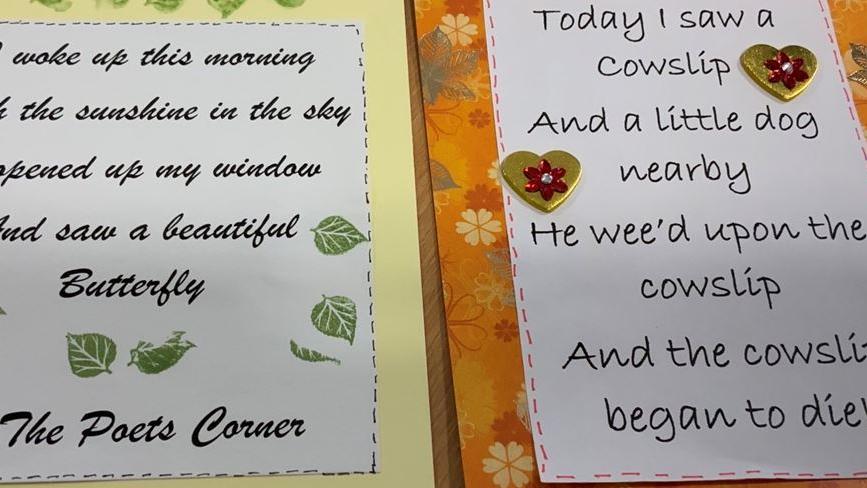 woke up this morning
the sunshine in the sky
opened up my window
And saw a beautiful
Butterfly
The Poets Corner
Today I saw a
Cowslip
And a little dog
nearby
He wee'd upon the
cowslip
And the cowslip
began to die!